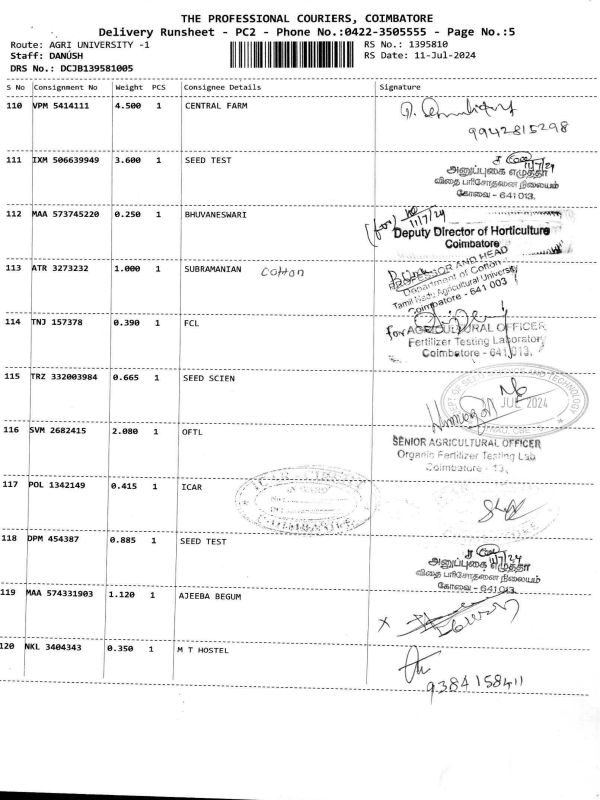 THE PROFESSIONAL COURIERS, COIMBATORE
Delivery Runsheet - PC2 - Phone No.:0422-3505555 - Page No.:5
Route: AGRI UNIVERSITY -1 RS No.: 1395810
Staff: DANUSH RS Date: 11-Jul-2024
DRS No.: DCJB139581005
S No Consignment No Weight PCS Consignee Details Signature
110 VPM 5414111 4.500 1 CENTRAL FARM
9942815298
111 IXM 506639949 3.600 1 SEED TEST
11/7/24
அனுப்புகை எழுத்தர்
விதை பரிசோதனை நிலையம்
கோவை - 641 013.
112 MAA 573745220 0.250 1 BHUVANESWARI
(for) 11/7/24
Deputy Director of Horticulture
Coimbatore
113 ATR 3273232 1.000 1 SUBRAMANIAN Cotton
PROFESSOR AND HEAD
Department of Cotton
Tamil Nadu Agricultural University
Coimbatore - 641 003
114 TNJ 157378 0.390 1 FCL
for AGRICULTURAL OFFICER
Fertilizer Testing Laboratory
Coimbatore - 641 013.
115 TRZ 332003984 0.665 1 SEED SCIEN
JUL 2024
116 SVM 2682415 2.080 1 OFTL
SENIOR AGRICULTURAL OFFICER
Organic Fertilizer Testing Lab
Coimbatore - 13.
117 POL 1342149 0.415 1 ICAR
118 DPM 454387 0.885 1 SEED TEST
11/7/24
அனுப்புகை எழுத்தர்
விதை பரிசோதனை நிலையம்
கோவை - 641 013.
119 MAA 574331903 1.120 1 AJEEBA BEGUM
X
120 NKL 3404343 0.350 1 M T HOSTEL
9384158411